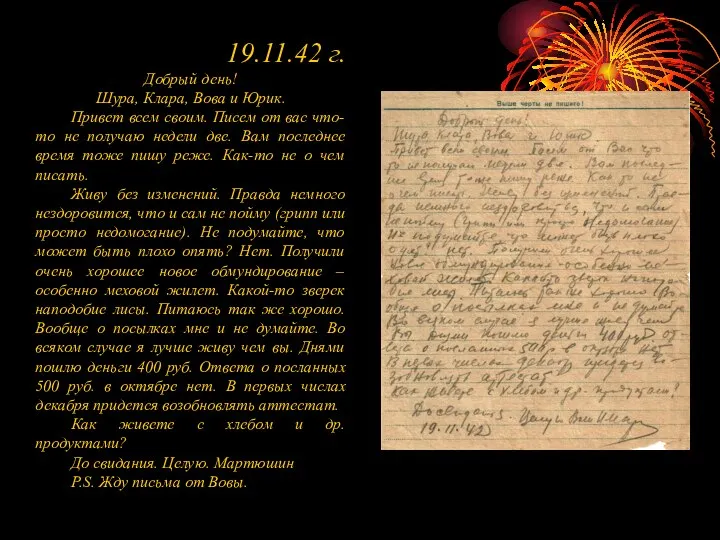 19.11.42 г.
Добрый день!
Шура, Клара, Вова и Юрик.
Привет всем своим. Писем от вас что-
то не получаю недели две. Вам последнее
время тоже пишу реже. Как-то не о чем
писать.
Живу без изменений. Правда немного
нездоровится, что и сам не пойму (грипп или
просто недомогание). Не подумайте, что
может быть плохо опять? Нет. Получили
очень хорошее новое обмундирование –
особенно меховой жилет. Какой-то зверек
наподобие лисы. Питаюсь так же хорошо.
Вообще о посылках мне и не думайте. Во
всяком случае я лучше живу чем вы. Днями
пошлю деньги 400 руб. Ответа о посланных
500 руб. в октябре нет. В первых числах
декабря придется возобновлять аттестат.
Как живете с хлебом и др.
продуктами?
До свидания. Целую. Мартюшин
P.S. Жду письма от Вовы.
Выше черты не пишите!
Добрый день!
Шура Клара, Вова и Юрик
Привет всем своим Писем от Вас что
то не получаю недели две. Вам послед-
тоже пишу реже Как то не
чем писать. Живу без изменений. Прав-
да немного нездоровится, что и сам
не пойму (грипп или просто недомогание)
Не подумайте что может быть плохо
опять? Нет. Получили очень хорошее
новое обмундирование - особенно ме-
ховой жилет. Какой то зверек
лисы. Питаюсь также хорошо. Во-
обще о посылках мне и не думайте
Во всяком случае я лучше живу чем
Вы Днями пошлю деньги 400 руб От-
вета о посланных 500 р. в октябре нет.
В первых числах декабря придется во-
зобновлять аттестат
Как живете с хлебом и др. продуктами?
До свидания Целую
19.11.42